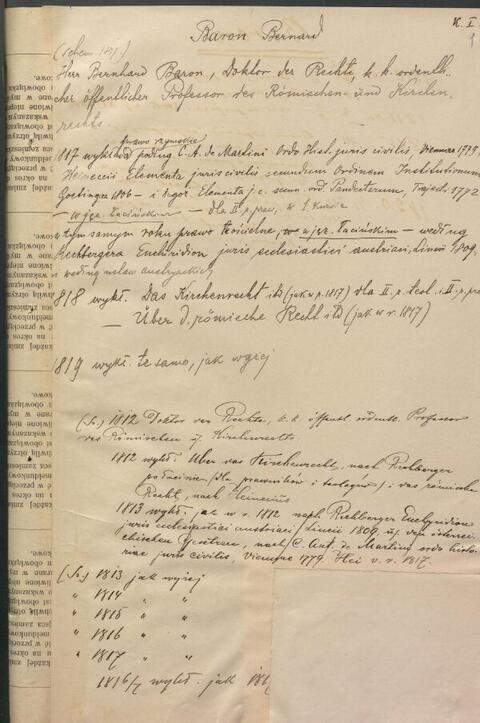 K. I
1
Baron Bernard
(Schem. 1817.)
Herr Bernhard Baron, Doktor der Rechte, k. k. ordentli-
cher öffentlicher Professor des Römischen- und Kirchen-
rechts.
prawo rzymskie
1817 wykłada podług C. A. de Martini Ordo Hist. juris civilis, Viennae 1779,
Heineccii Elementa juris civilis secundum Ordinem Institutionum
Goetingae 1806 – i tegoż Elementa j. c. secun. ord. Pandectarum, Traject. 1772
– w jęz. łacińskim – dla II r. praw, w I. kursie
w tym samym roku prawo kościelne, w jęz. łacińskim – według
Rechbergera Enchiridion juris ecclesiastici austriaci, Lincii 1809.
według ustaw austryackich
818 wykł. Das Kirchenrecht itd (jak w r. 1817) dla II. r. teol. i II. r. praw
– Über d. römische Recht itd (jak w r. 1817)
1819 wykł. te samo, jak wyżej
(Sz.) 1812 Doktor der Rechte, k. k. öffentl. ordentl. Professor
des Römischen u. Kirchenrechts
1812 wykł. Über das Kirchenrecht, nach Rechberger
po łacinie, dla prawników i teologów; das römische
Recht, nach Heineccius
1813 wykł. jak w r. 1812 nach Rechberger Enchyridion
juris ecclesiastici austriaci Lincii 1809 u. den österrei-
chischen Gesetzen, nach C. Ant. de Martini ordo histo-
riae juris civilis, Viennae 1779. v. r. 1817.
(Sz.) 1813 jak wyżej
" 1814 " "
" 1815 " "
" 1816 " "
" 1817 " "
1816/7 wykł. jak